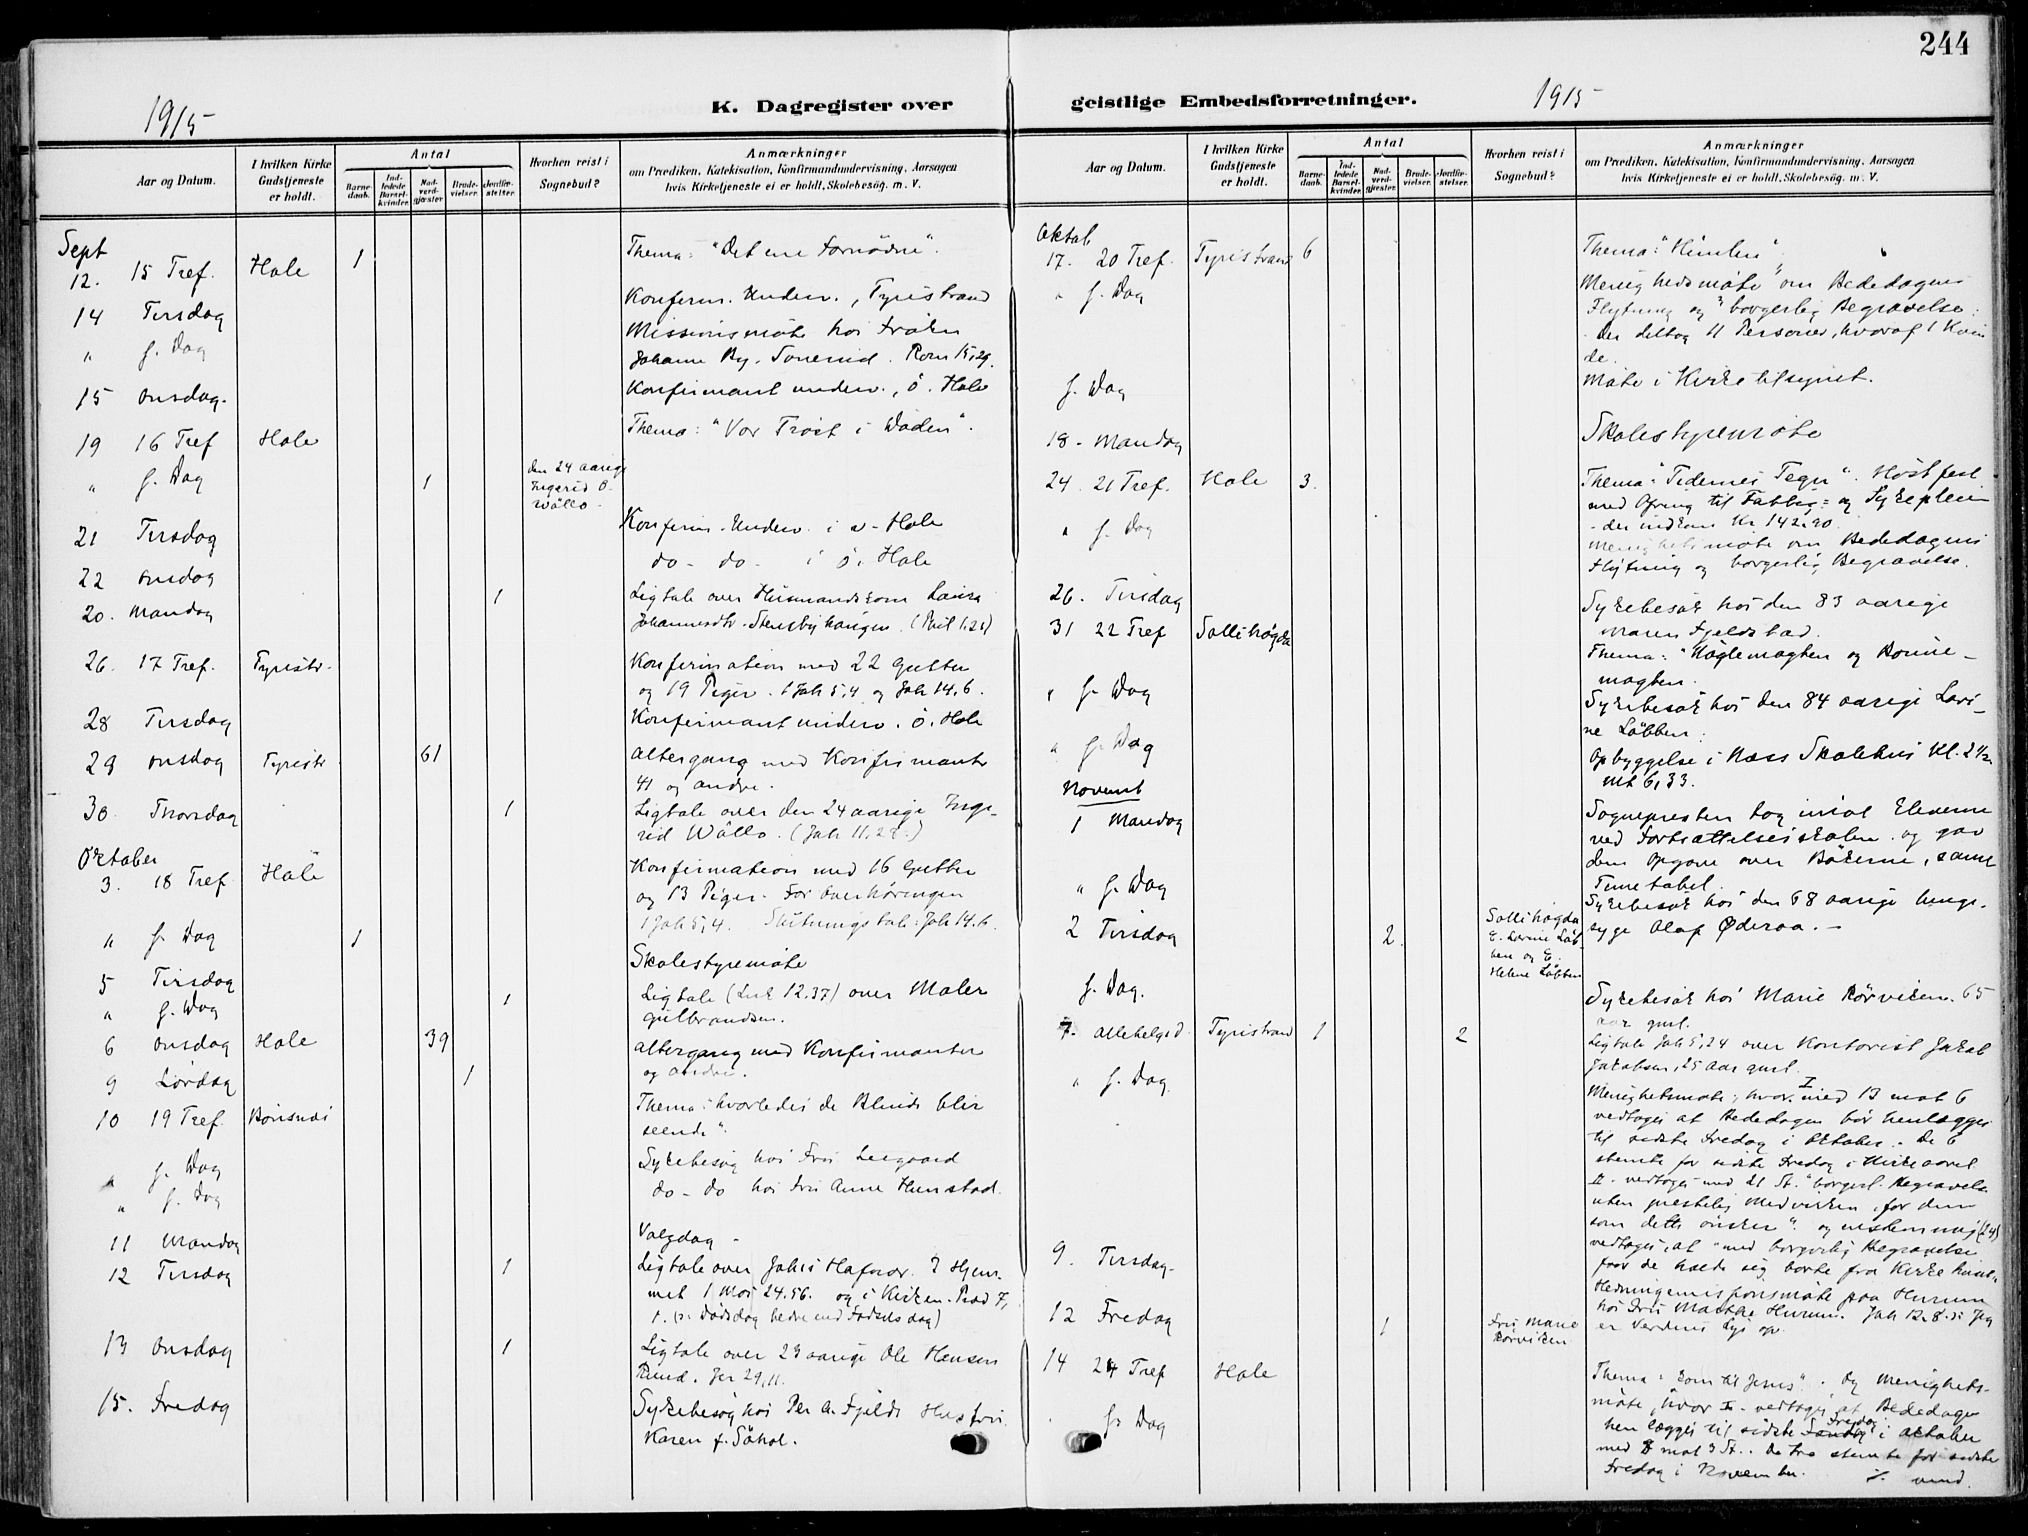 244
1915
K. Dagregister over
geistlige Embedsforretninger.
1915
Aar og Datum.
I hvilken Kirke Gudstjeneste er holdt.
Antal
Barnedaab.
Indledede Barselkvinder.
Nadverdgjæster.
Brudevielser.
Jordfæstelser.
Hvorhen reist i Sognebud?
Anmærkninger
om Prædiken, Katekisation, Konfirmandundervisning, Aarsagen
hvis Kirketjeneste ei er holdt, Skolebesøg, m. V.
Sept
12. 15 Tref. Hole 1 Thema: "Det ene Fornödne".
14 Tirsdag Konfirm. Underv., Tyristrand
" s. Dag Missionsmöte hos Fröken
Johanne By. Rom 15,29.
15 Onsdag. Konfirmant underv., ö. Hole
19 16 Tref Hole Thema: "Vor Tröst i Döden".
" s. Dag 1 den 24 aarige
Ingerid
Wällo.
21 Tirsdag Konfirm. Underv. i v. Hole
22 Onsdag do - do - i ö. Hole
20. Mandag 1 Ligtale over Husmandskone Laura
Johannesdtr. Stensbyhaugen. (Phil 1.21)
26. 17 Tref. Tyristr. Konfirmation med 22 Gutter
og 19 Piger. 1 Joh 5,4 og Joh 14.6.
28 Tirsdag Konfirmant underv. ö. Hole
29 Onsdag Tyristr 61 Altergang med Konfirmanter
41 og andre.
30. Thorsdag 1 Ligtale over den 24 aarige Inge-
rid Wällo. (Joh 11.28.)
Oktober
3. 18 Tref. Hole Konfirmation med 16 Gutter
og 13 Piger. For Overhöringen
1 Joh 5,4. Slutningstale: Joh 14.6.
" s. Dag 1
5 Tirsdag Skolestyremöte
" s. Dag 1 Ligtale (Luk 12.37) over Maler
Gulbrandsen.
6 Onsdag Hole 39 Altergang med Konfirmanter
og andre.
9 Lördag 1
10 19 Tref. Bönsnes Thema: hvorledes de Blinde blir
seende".
" s. Dag Sykebesög hos Fru
" s. Dag do - do hos Fru Anne Hunstad.
11 Mandag Valgdag -
12 Tirsdag 1 Ligtale over Johs Hafnor. I Hjem-
met 1 Mos 24.56. og i Kirken. Præd 7,
1. (: Dödsdag bedre end Födselsdag)
13 Onsdag 1 Ligtale over 23 aarige Ole Hansen
Rund. Jer 29,11.
15. Fredag Sykebesög hos Per A. Fjelds Hustru
Karen f. Söhol.
Aar og Datum.
I hvilken Kirke Gudstjeneste er holdt.
Antal
Barnedaab.
Indledede Barselkvinder.
Nadverdgjæster.
Brudevielser.
Jordfæstelser.
Hvorhen reist i Sognebud?
Anmærkninger
om Prædiken, Katekisation, Konfirmandundervisning, Aarsagen
hvis Kirketjeneste ei er holdt, Skolebesøg, m. V.
Oktob
17. 20 Tref. Tyristrand 6 Thema: "Himlen".
" s. Dag Menighedsmöte om Bededagens
Flytning og borgerlig Begravelse.
- Der deltog 11 Personer, hvoraf 1 Kvin
de.
s. Dag Möte i Kirketilsynet.
18. Mandag Skolestyremöte
24. 21 Tref. Hole 3. Thema: "Tidernes Tegn". Höstfest
med Ofring til Fattig= og Sykepleie
- der indkom Kr 142.90.
" s. Dag Menighetsmöte om Bededagens
Flytning og borgerlig Begravelse.
26. Tirsdag Sykebesök hos den 83 aarige
Maren Fjeldstad.
31 22 Tref Sollihögda Thema: Magten og Bönne-
magten.
" s. Dag Sykebesök hos den 84 aarige Lovi-
ne Löbben.
" s. Dag Opbyggelse i Næss Skolehus Kl. 2 1/2
Mt 6,33.
Novemb
1 Mandag Sognepresten tog imot Eleverne
ved Fortsættelsesskolen og gav
dem Opgave over Bökerne, samt
Timetabel.
" s. Dag Sykebesök hos den 68 aarige lunge-
syge Olaf Øderaa. -
2 Tirsdag 2. Sollihögda
E. Lovine Löb
ben og E.
Helene Löbben
s. Dag. Sykebesök hos Marie Rörviken. 65
aar gml.
7. Allehelgesd. Tyristrand 1 2 Ligtale Joh 5,24 over Kontorist Jakob
Jakobsen, 25 aar gml.
" s. Dag Menighetsmöte, hvor I med 13 mot 6
vedtoges at Bededagen bör henlægges
til sidste Fredag i Oktober. De 6
stemte for sidste Fredag i Kirkeaaret.
II. vedtoges med 21 St. "borgerl. Begravelse
uten prestelig Medvirken, for dem
som dette önsker" og enstemmig (24)
vedtoges, at "med borgerlig Begravelse
faar de holde sig borte fra Kirkehuset.
9. Tirsdag. Hedningemissionsmöte paa Hurum
hos Fru Marthe Hurum. Joh 12.8. Jeg
er Verdens Lys osv.
12 Fredag 1 Fru Marie
Rörviken
14 24 Tref Hole Thema: "Kom til Jesus". Og Menighets-
möte, hvor I vedtoges, at Bededagen
s. Dag henlægges til sidste Fredag i Oktober
med 8 mot 3 St.. De tre stemte for sidste
Fredag i November. ./. vend.